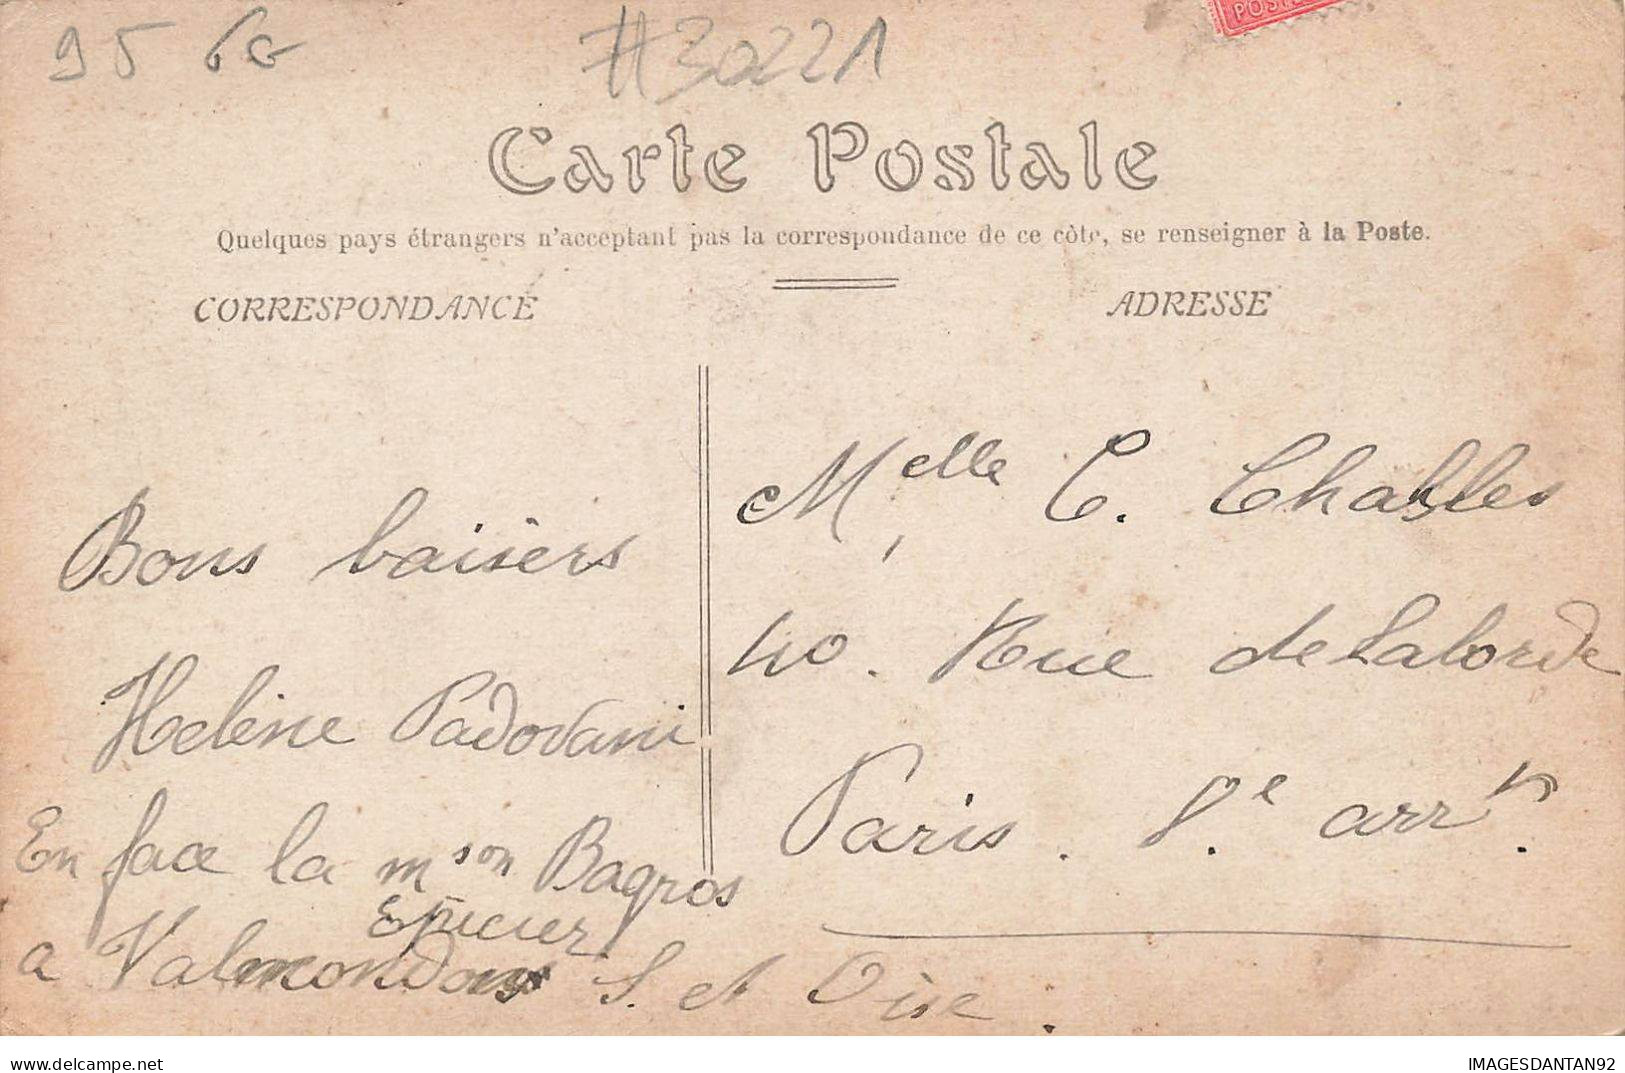 95 6G
#30221
POSTES
Carte Postale
Quelques pays étrangers n'acceptent pas la correspondance de ce côté, se renseigner à la Poste.
CORRESPONDANCE
Bons baisers
Helène Padovani
En face la mson Bagros
Epicier
a Valmondois S. et Oise.
ADRESSE
Melle C. Chables
40. Rue de Laborde
Paris. 8.e arrt.
IMAGESDANTAN92